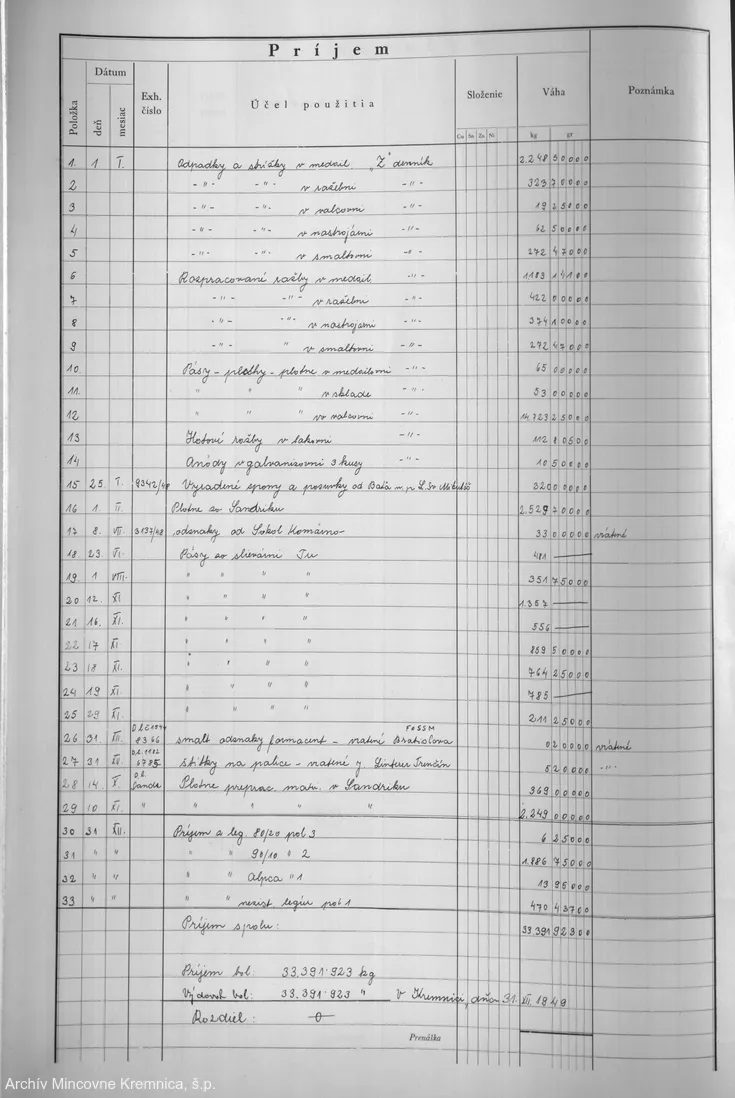 Príjem
Položka Dátum deň mesiac Exh. číslo Účel použitia Složenie Cu Sn Zn Ni Váha kg gr Poznámka
1. 1 I. Odpadky a strižky v medail „Z" denník 2.248 50000
2 -"- -"- v razební -"- 323 70000
3 -"- -"- v valcovni -"- 19 25000
4 -"- -"- v nastrojárni -"- 62 50000
5 -"- -"- v smaltovni -"- 272 47000
6 Rozpracované ražby v medail -"- 1183 14100
7 -"- -"- v razebni -"- 422 00000
8 -"- -"- v nastrojarni -"- 374 10000
9 -"- " v smaltovni -"- 272 47000
10. Pásy - pliešky - plotne v medailovni -"- 65 00000
11. " " v sklade " - 53 00000
12 " " vo valcovni -"- 14.723 25000
13 Hotové ražby v lakovni -"- 112 80500
14 Anódy v galvanizovni 3 kusy -"- 10 50000
15 25. I. 9342/48 Vyradené spony a posuvky od Baťa n.p. L. Sv. Mikuláš 3200 0000
16 1. II. Plotne zo Sandriku 2.529 70000
17 8. VII. 3137/48 odznaky od Sokol Komárno- 33 00000 vrátené
18. 23. VI. Pásy zo slievárni Tu 481 —
19. 1 VIII. " " " " 351 75000
20 12. XI " " " " 1.357 —
21 16. XI. " " " " 556 —
22 17 XI " " " " 859 50000
23 18 XI. " " " " 764 25000
24 19 XI. " " " " 785 —
25 29 XI. " " " " 211 25000
26 31. XII. 8366 smalt odznaky - vratené Bratislava FOSSM 0 20000 vrátené
27 31 XII. D.l. 1182 6785 štítky na palice - vratené Linterer Trenčín 5 20000 -"-
28 14. X. D.l. Sandr. Plotne preprac. mati. v Sandriku 369 00000
29 10 XI. " " " " " 2.249 00000
30 31 XII. Príjem a leg. 80/20 pol 3 6 25000
31 " " " " 90/10 " 2 1.886 75000
32 " " " " Alpca " 1 13 95000
33 " " " " nezist. legúr pol 1 470 43700
Príjem spolu: 33.391 92300
Príjem bol: 33.391·923 kg
Výdavok bol: 33.391·923 " V Kremnici, dňa 31. XII. 1949
Rozdiel: 0
Prenáška
Archív Mincovne Kremnica, š.p.